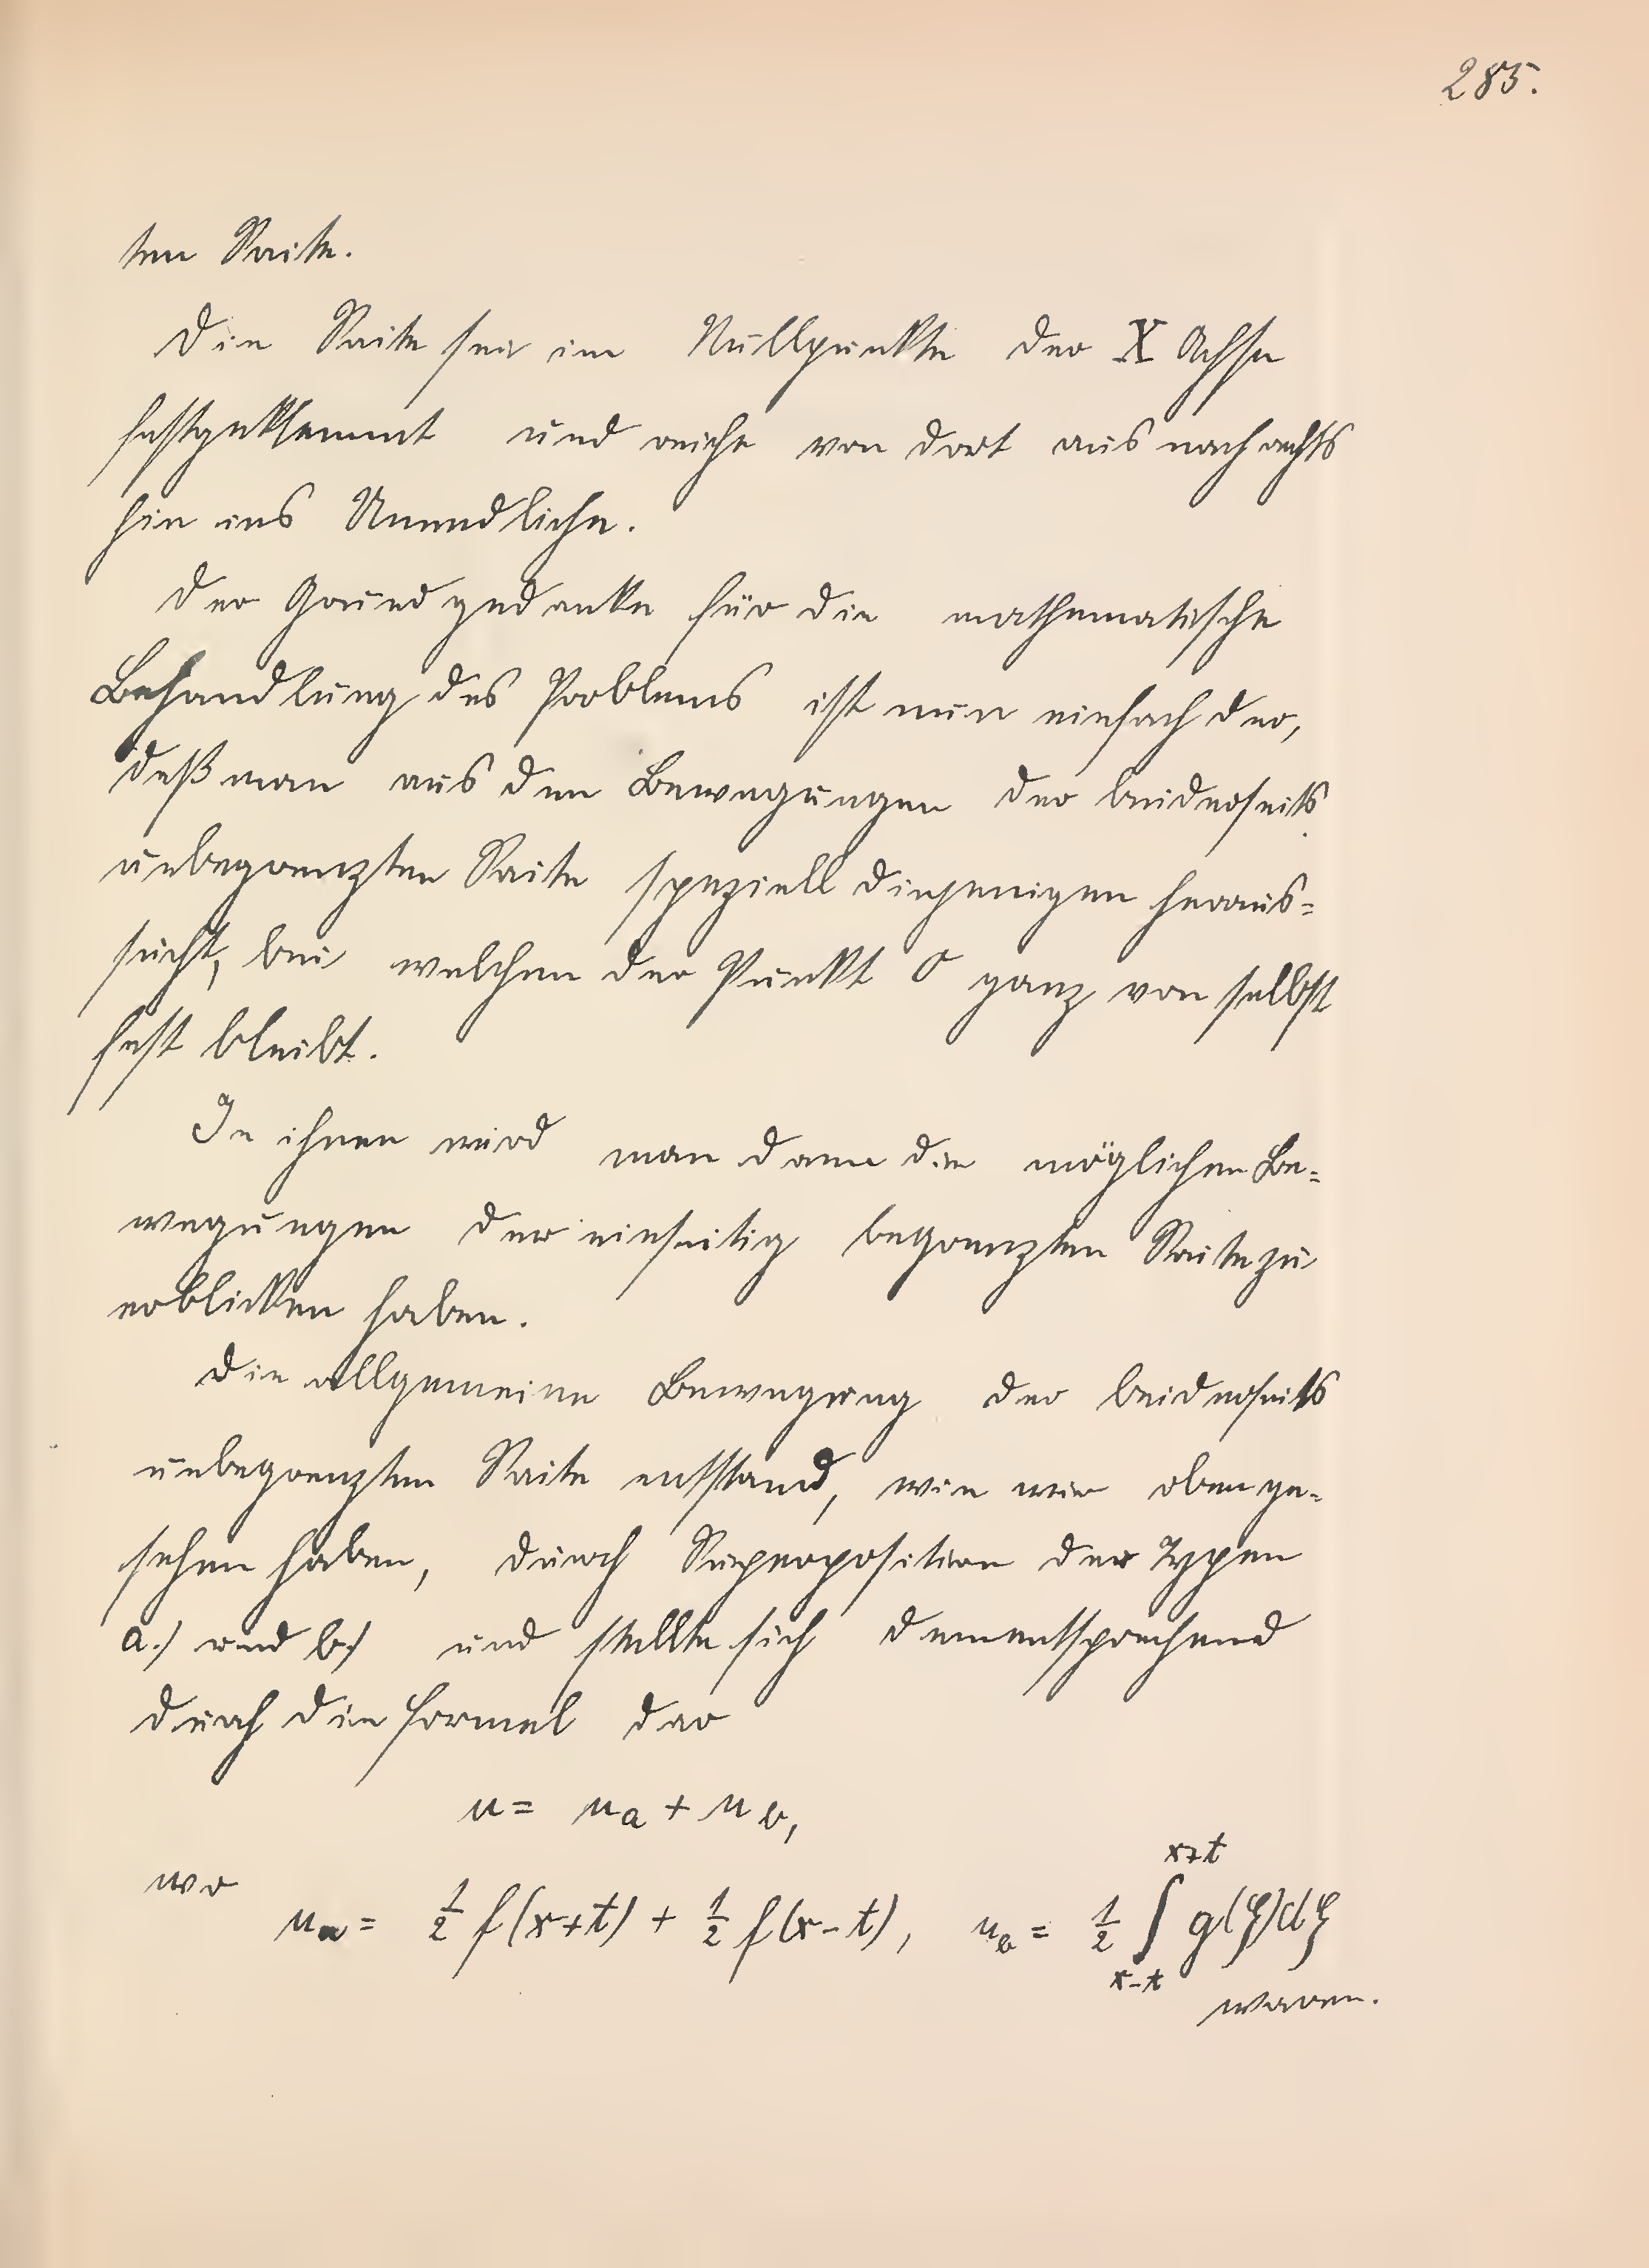 285.
ten Saite.
Die Saite sei im Nullpunkte der X Achse
festgeklemmt und reiche von dort aus nach rechts
hin ins Unendliche.
Der Grundgedanke für die mathematische
Behandlung des Problems ist nun einfach der,
daß man aus den Bewegungen der beiderseits
unbegrenzten Saite speziell diejenigen heraus=
sucht, bei welchen der Punkt O ganz von selbst
fest bleibt.
In ihnen wird man dann die möglichen Be=
wegungen der einseitig begrenzten Saite zu
erblicken haben.
Die allgemeine Bewegung der beiderseits
unbegrenzten Saite entstand, wie wir oben ge=
sehen haben, durch Superposition der Typen
a.) und b.) und stellte sich dementsprechend
durch die Formel dar
u = u_a + u_b,
wo u_a = 1/2 f(x+t) + 1/2 f(x-t), u_b = 1/2 ∫_{x-t}^{x+t} g(ξ)dξ
waren.